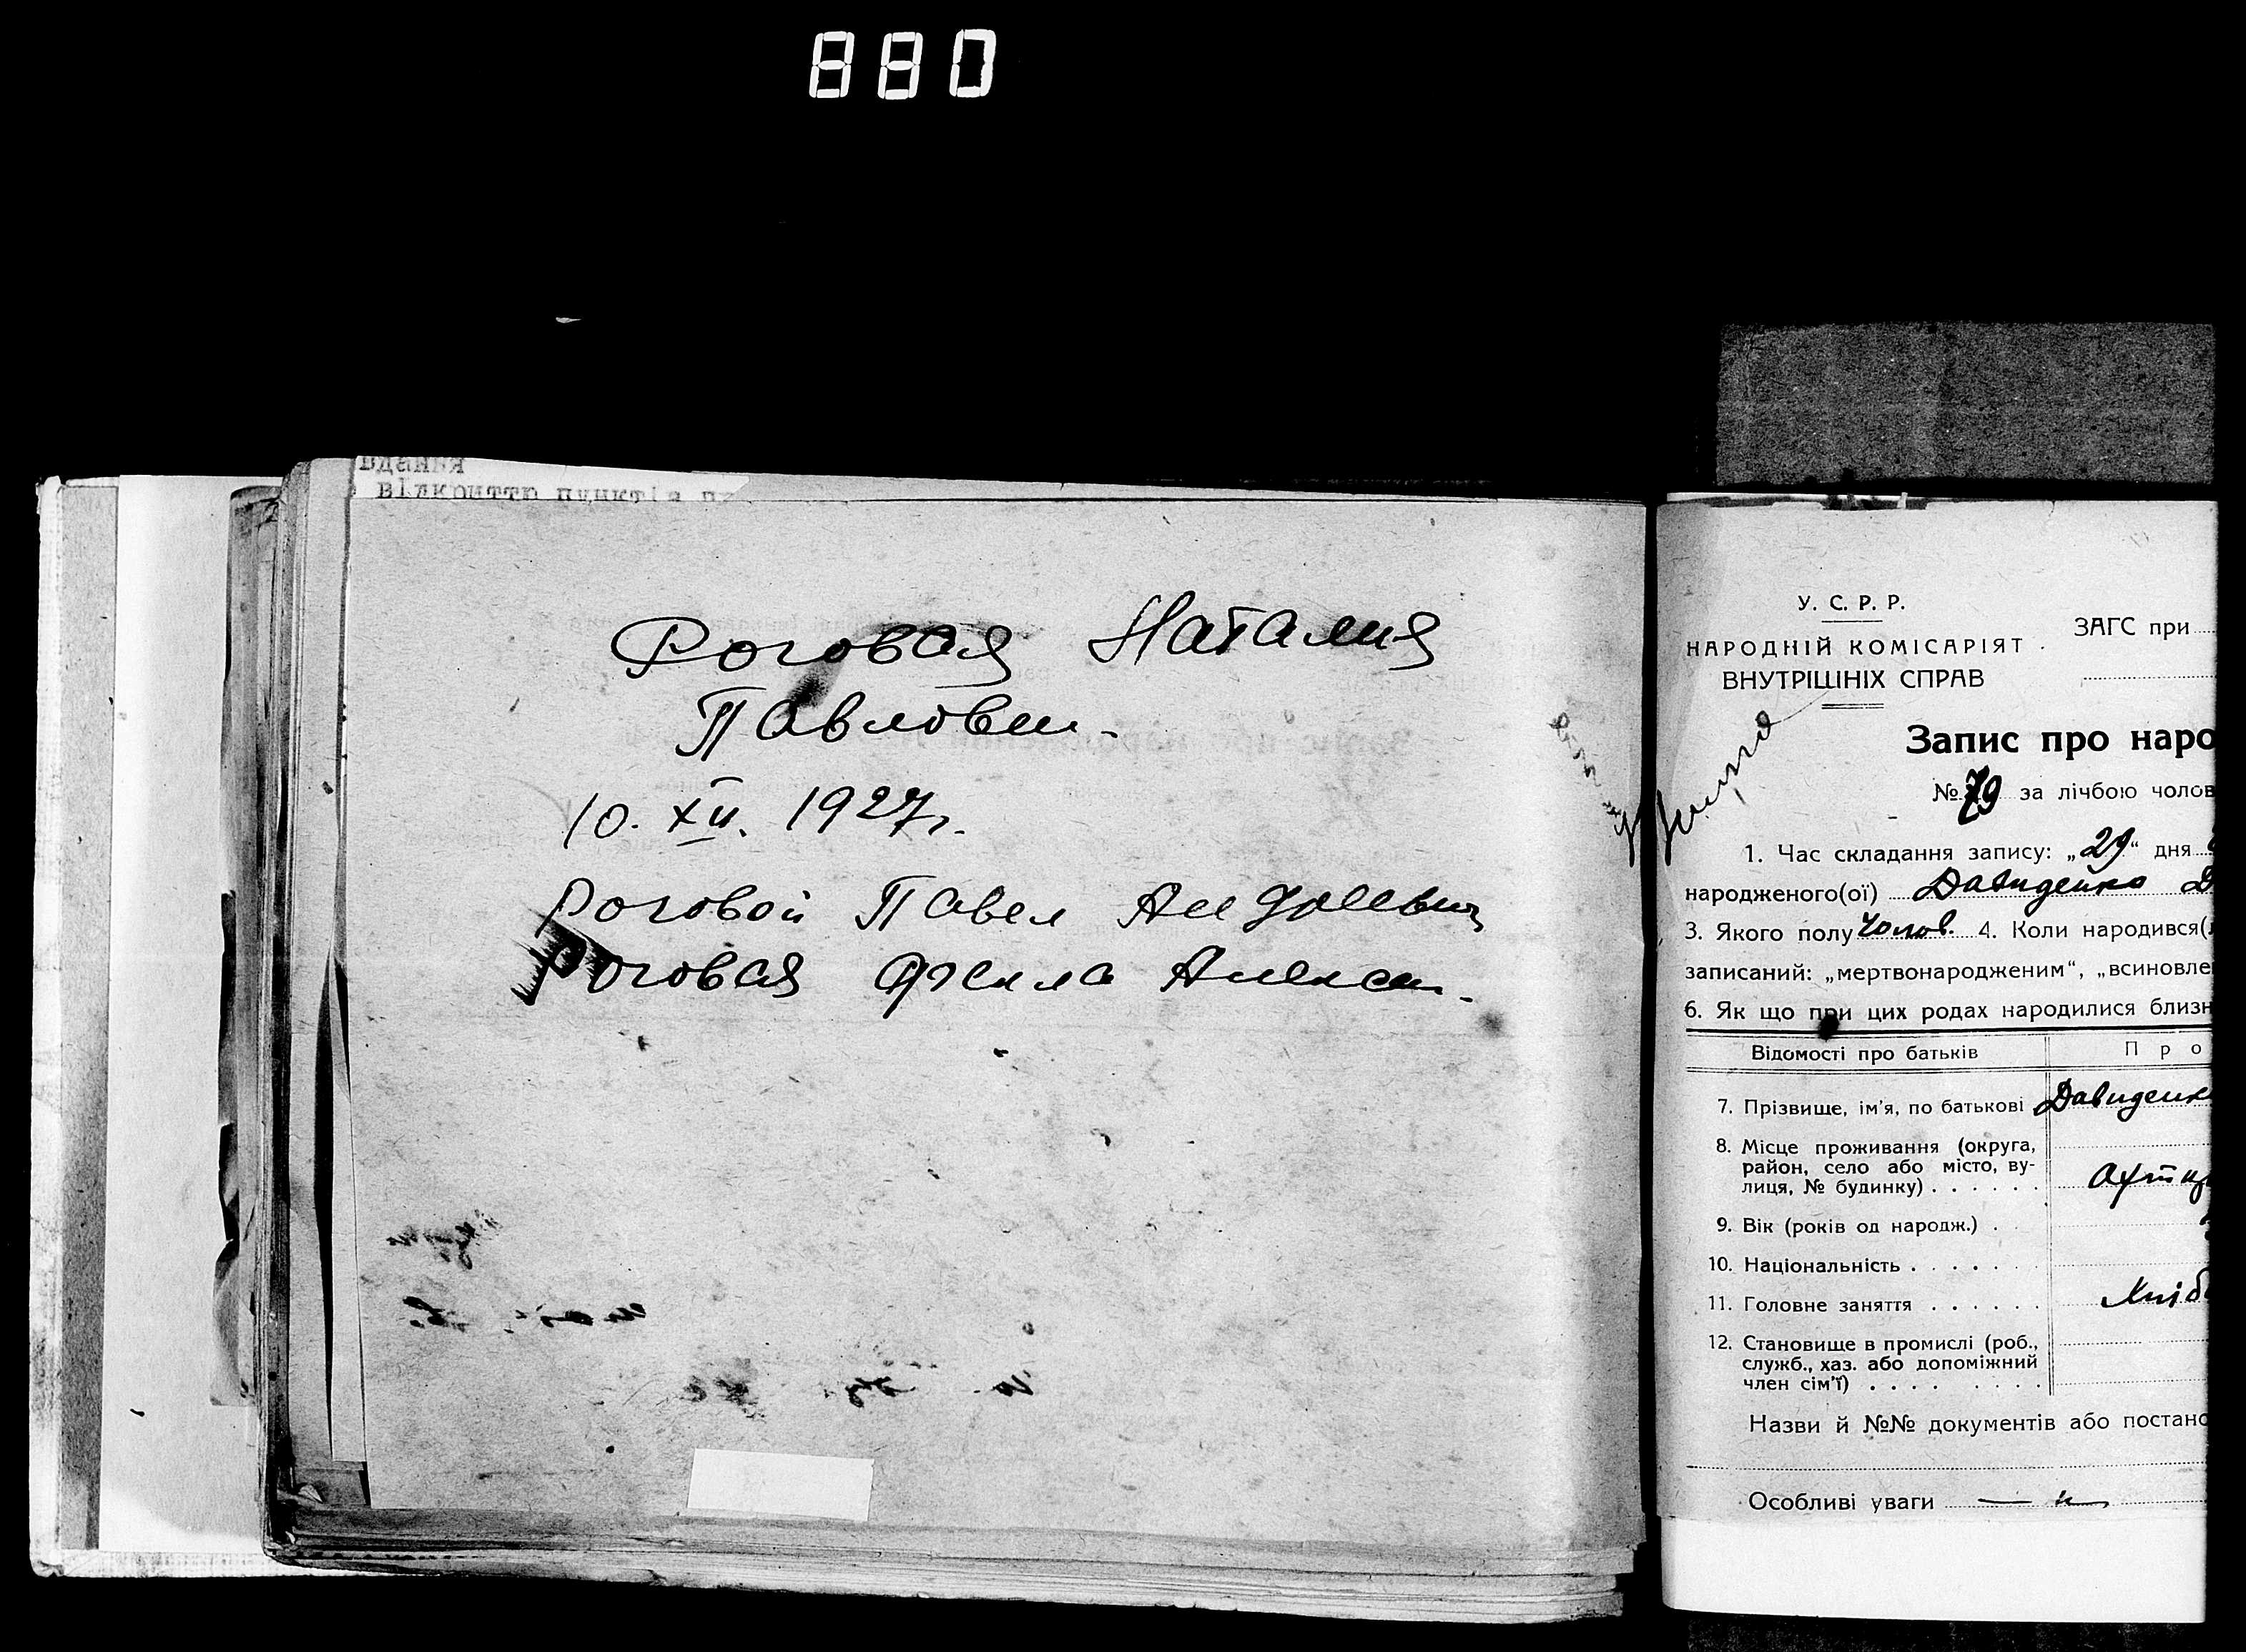 880
вдання
відкриття пунктів
Роговая Наталия
Павловн.
10. XII. 1927г.
Роговой Павел
Роговая Фекла Алексан.
У. С. Р. Р.
НАРОДНІЙ КОМІСАРІЯТ
ВНУТРІШНІХ СПРАВ
ЗАГС при
Запис про наро
№ 79 за лічбою чолов
1. Час складання запису: „29“ дня
народженого(ої) Давиденко Д
3. Якого полу Чолов. 4. Коли народився(
записаний: „мертвонародженим“, „всиновле
6. Як що при цих родах народилися близн
Відомості про батьків
Про
7. Прізвище, ім'я, по батькові Давиденк
8. Місце проживання (округа,
район, село або місто, ву-
лиця, № будинку) . . . . . . Охтир
9. Вік (років од народж.) . .
10. Національність . . . . . . .
11. Головне заняття . . . . . . Хліб
12. Становище в промислі (роб.,
служб., хаз. або допоміжний
член сім'ї) . . . . . . . . .
Назви й №№ документів або постано
Особливі уваги